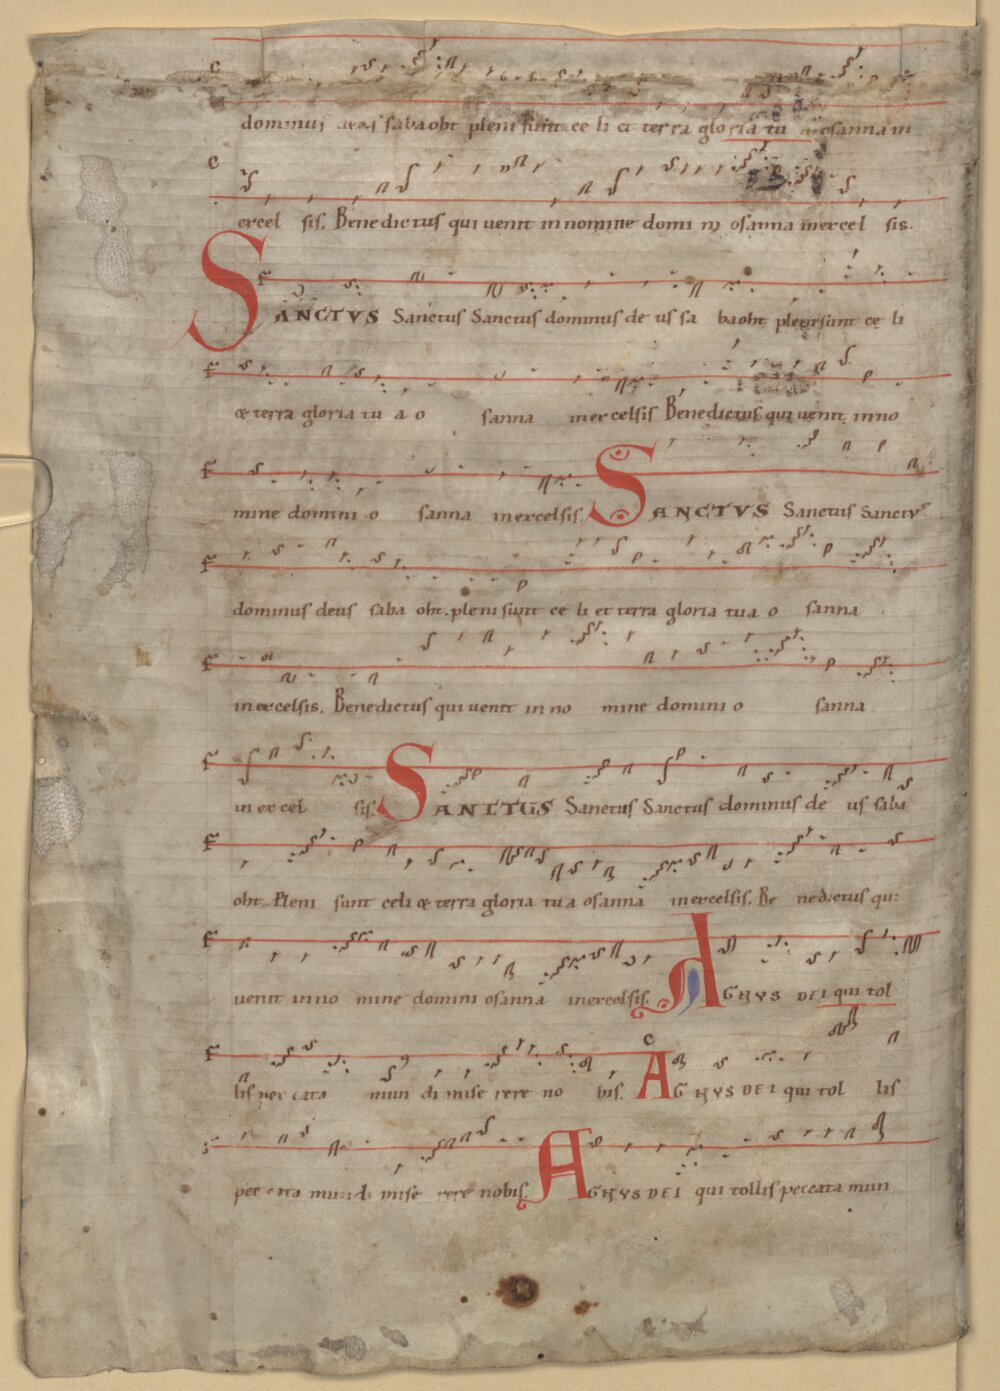 c
dominus deus sabaoht pleni sunt ce li et terra gloria tu a osanna in
c
excel sis. Benedictus qui uenit in nomine domi ni osanna inexcel sis.
F
SANCTVS Sanctus Sanctus dominus de us sa baoht pleni sunt ce li
F
& terra gloria tu a o sanna inexcelsis Benedictus qui uenit in no
F
mine domini o sanna inexcelsis. SANCTVS Sanctus Sanctus
F
dominus deus saba oht. pleni sunt ce li et terra gloria tua o sanna
F
in excelsis. Benedictus qui uenit in no mine domini o sanna
F
in excel sis. SANCTUS Sanctus Sanctus dominus de us saba
F
oht. Pleni sunt celi & terra gloria tua osanna inexcelsis. Be nedictus qui
F
uenit in no mine domini osanna inexcelsis. AGNVS DEI qui tol
F c
lis peccata mun di mise rere no bis. AGNVS DEI qui tol lis
mundi mise rere nobis. AGNVS DEI qui tollis peccata mun